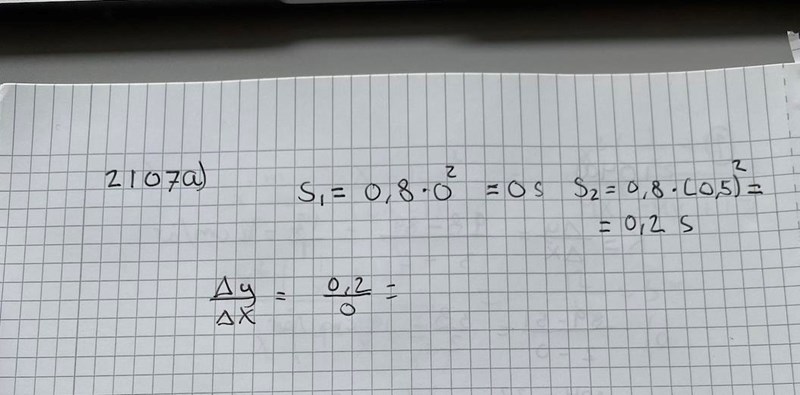 2107a) S₁ = 0,8 · 0² = 0 s S₂ = 0,8 · (0,5)² =
= 0,2 s
Δy/Δx = 0,2/0 =